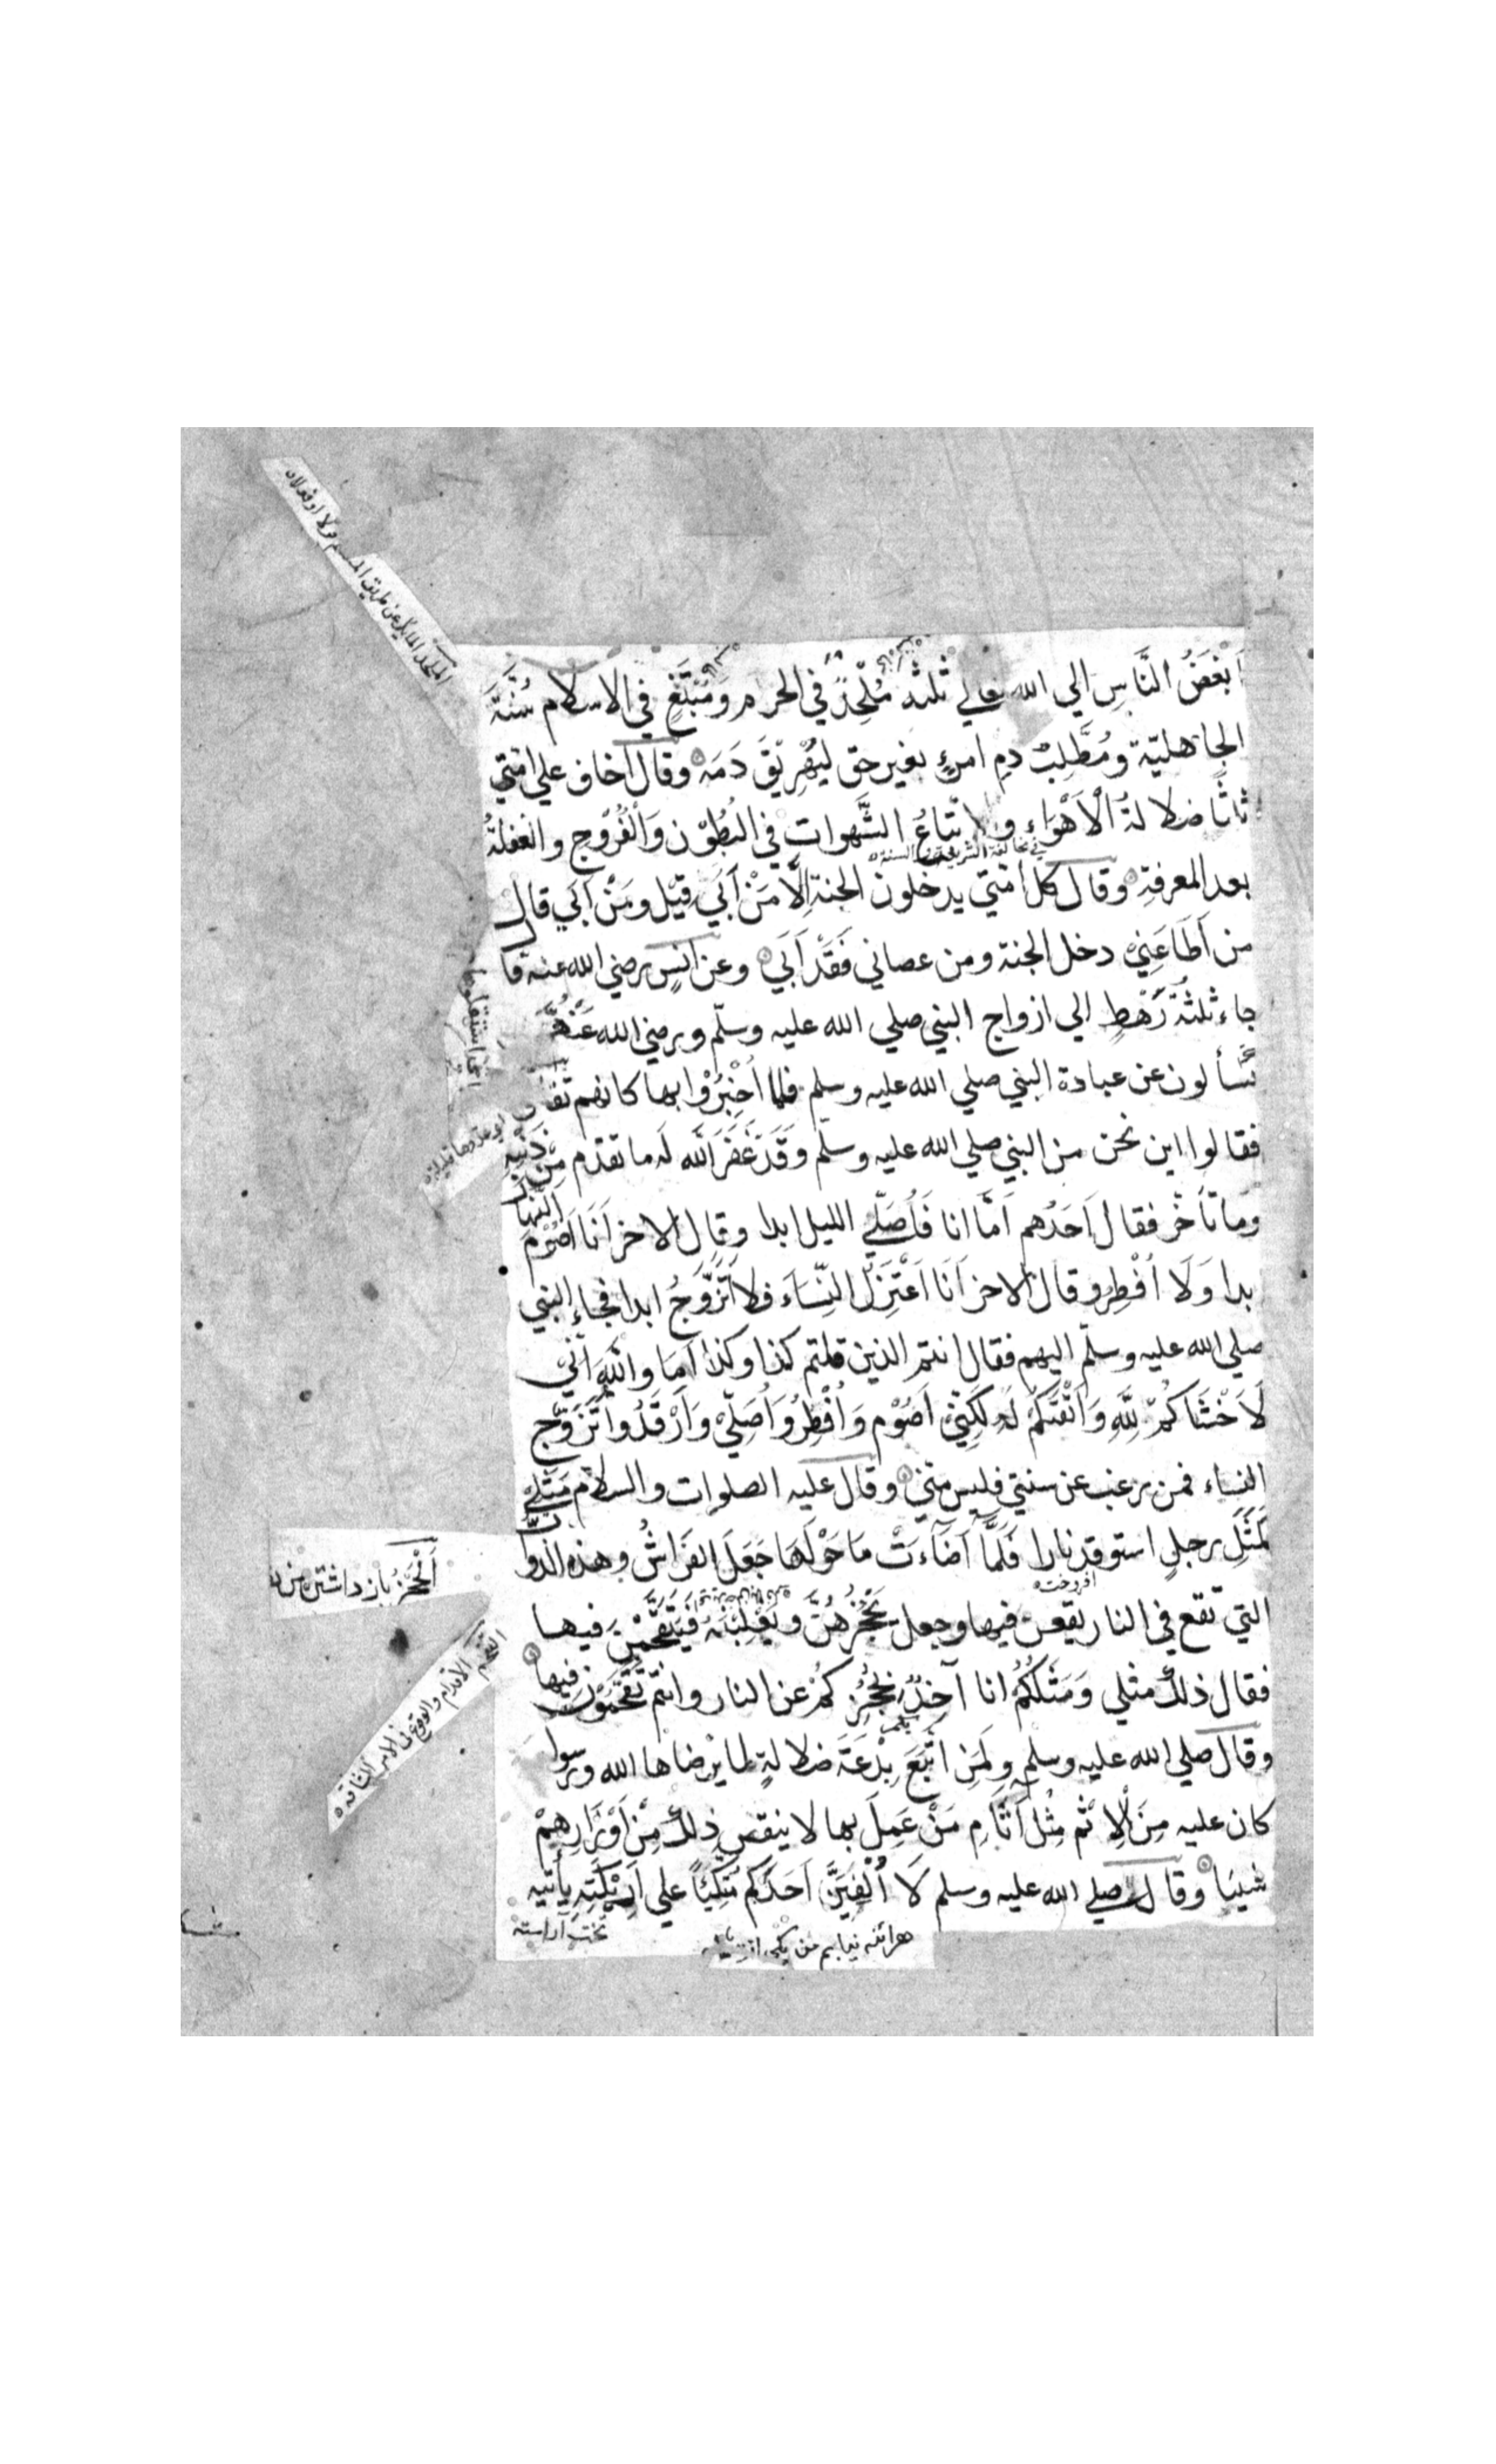 اَبْغَضُ النَّاسِ الي الله تعالي ثلثه مُلْحِدٌ في الحرم وَمُبْتَغٍ في الاسلام سُنَّةَ
الجاهليّة ومُطَّلِبُ دمِ امرءٍ بغير حق ليُهْرِيْقَ دَمَه وقال اخاف علي امتي
ثلثًا ضلالةُ الْاَهْوَاءِ و اتباعُ الشَّهوات في البُطُوْن وَالْفُرُوْجِ والغفلةُ
في مخالفة الشريعة والسنة
بعد المعرفةِ وقال كل امتي يدخلون الجنة اِلَّا مَنْ اَبَي قِيْلَ ومَنْ اَبَي قال
من اَطَاعَنِيْ دخل الجنة ومن عصاني فَقَدْ اَبَي وعن انسٍ رضي الله عنه قا
جاء ثلثةُ رَهْطٍ الي ازواج النبي صلي الله عليه وسلّم ورضي الله عَنْهُنَّ
يسألون عن عبادة النبي صلي الله عليه وسلم فلما اُخْبِرُوْا بها كانهم
فقالوا اين نحن من النبي صلي الله عليه وسلّم وَقَدْ غَفَرَ اللّٰه لَه ما تقدّم مِنْ ذَنْبِه
وما تَأَخَّرَ فقال اَحَدُهم اَمَّا انا فَاُصَلِّي الليل ابدا وقال الاخر اَنَا اَصُوْم النَّهَا
بدا وَلَا اُفْطِر وقال الاخر اَنَا اَعْتَزِلُ النِّسَاَء فلا اَتَزَوَّجُ ابدا فجاء النبي
صلي الله عليه وسلّم اليهم فقال انتم الذين قلتم كذا وكذا اَمَا وَاللّٰهِ اَنِّي
لَاَخْشَاكُمْ لِلّٰهِ وَاَتْقٰكُمْ لَه لكِنِّيْ اَصُوْم وَاُفْطِرُ وَاُصَلِّيْ وَاَرْقُدُ واَتَزَوَّج
النساء فمن رغب عن سنتي فليس مِنّي وقال عليه الصلوات والسلام مَثَلِيْ
كَمَثَلِ رجلٍ استوقد نارا فَلَمَّا اَضَاءَتْ مَا حَوْلَهَا جَعَلَ الفَرَاشُ وهذه الدوا
افروخته
التي تقع في النار يقعن فيها وجعل يَحْجُزُهُنَّ ويَغْلِبْنَهُ فَيَتَقَحَّمْنَ فيها
فقال ذلك مثلي وَمَثَلُكُمْ انا آخِذٌ بحُجَزِكُمْ عن النار وانتم تَقَحَّمُوْنَ فيها
وقال صلي الله عليه وسلم ولمَن اتَّبَعَ بِدْعَةَ ضلالةٍ لا يرضاها الله ورسوا
كان عليه مِنَ الاِثْم مِثْل اَثَامِ مَنْ عَمِلَ بها لا ينقص ذلك مِنْ اَوْزَارِهِمْ
شيئا وقال صلي الله عليه وسلم لَا اُلْفِيَنَّ اَحَدَكم مُتَّكِئًا علي اَرِيْكَتِهِ يَأتيه
تخت آراسته
هرآئنه نيابم من يكي از
الملحد المائل عن طريق
اَلْحَجْزُ باز داشتن
التقحم الاقدام والوقوع في الامر الشاقه